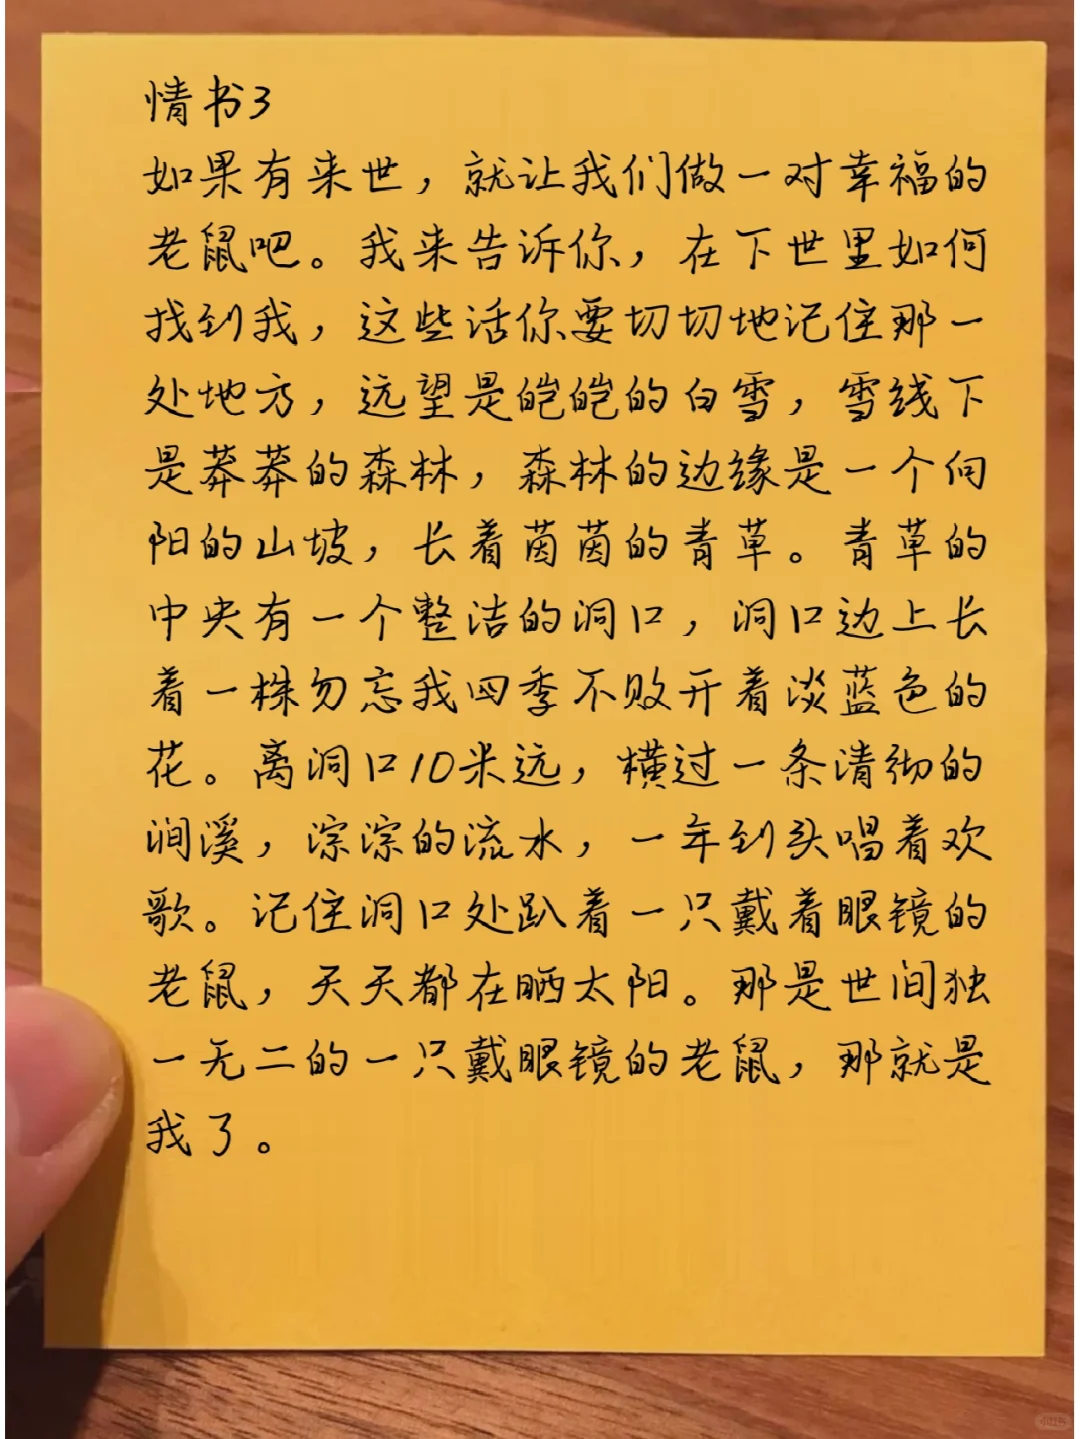 情书3
如果有来世，就让我们做一对幸福的
老鼠吧。我来告诉你，在下世里如何
找到我，这些话你要切切地记住那一
处地方，远望是皑皑的白雪，雪线下
是莽莽的森林，森林的边缘是一个向
阳的山坡，长着茵茵的青草。青草的
中央有一个整洁的洞口，洞口边上长
着一株勿忘我四季不败开着淡蓝色的
花。离洞口10米远，横过一条清彻的
涧溪，淙淙的流水，一年到头唱着欢
歌。记住洞口处趴着一只戴着眼镜的
老鼠，天天都在晒太阳。那是世间独
一无二的一只戴眼镜的老鼠，那就是
我了。
小红书